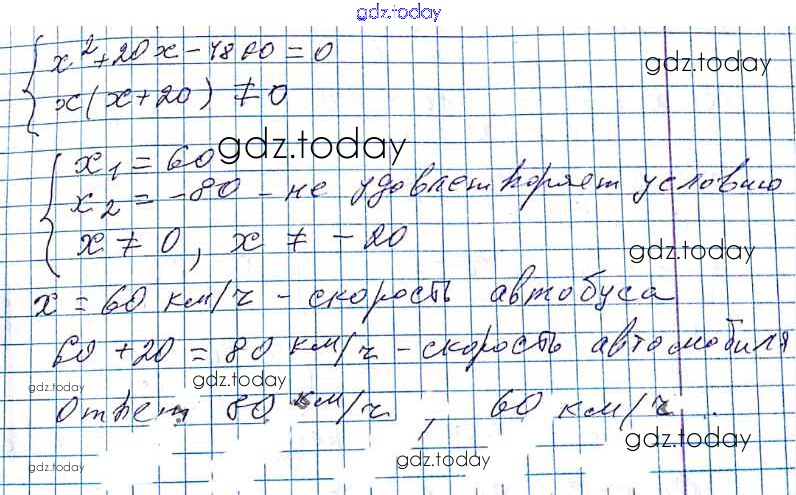 gdz.today
x² + 20x - 4800 = 0
gdz.today
x(x+20) ≠ 0
x₁ = 60 gdz.today
x₂ = -80 - не удовлетворяет условию
x ≠ 0, x ≠ -20
gdz.today
x = 60 км/ч - скорость автобуса
60 + 20 = 80 км/ч - скорость автомобиля
gdz.today gdz.today
Ответ 80 км/ч, 60 км/ч.
gdz.today
gdz.today gdz.today